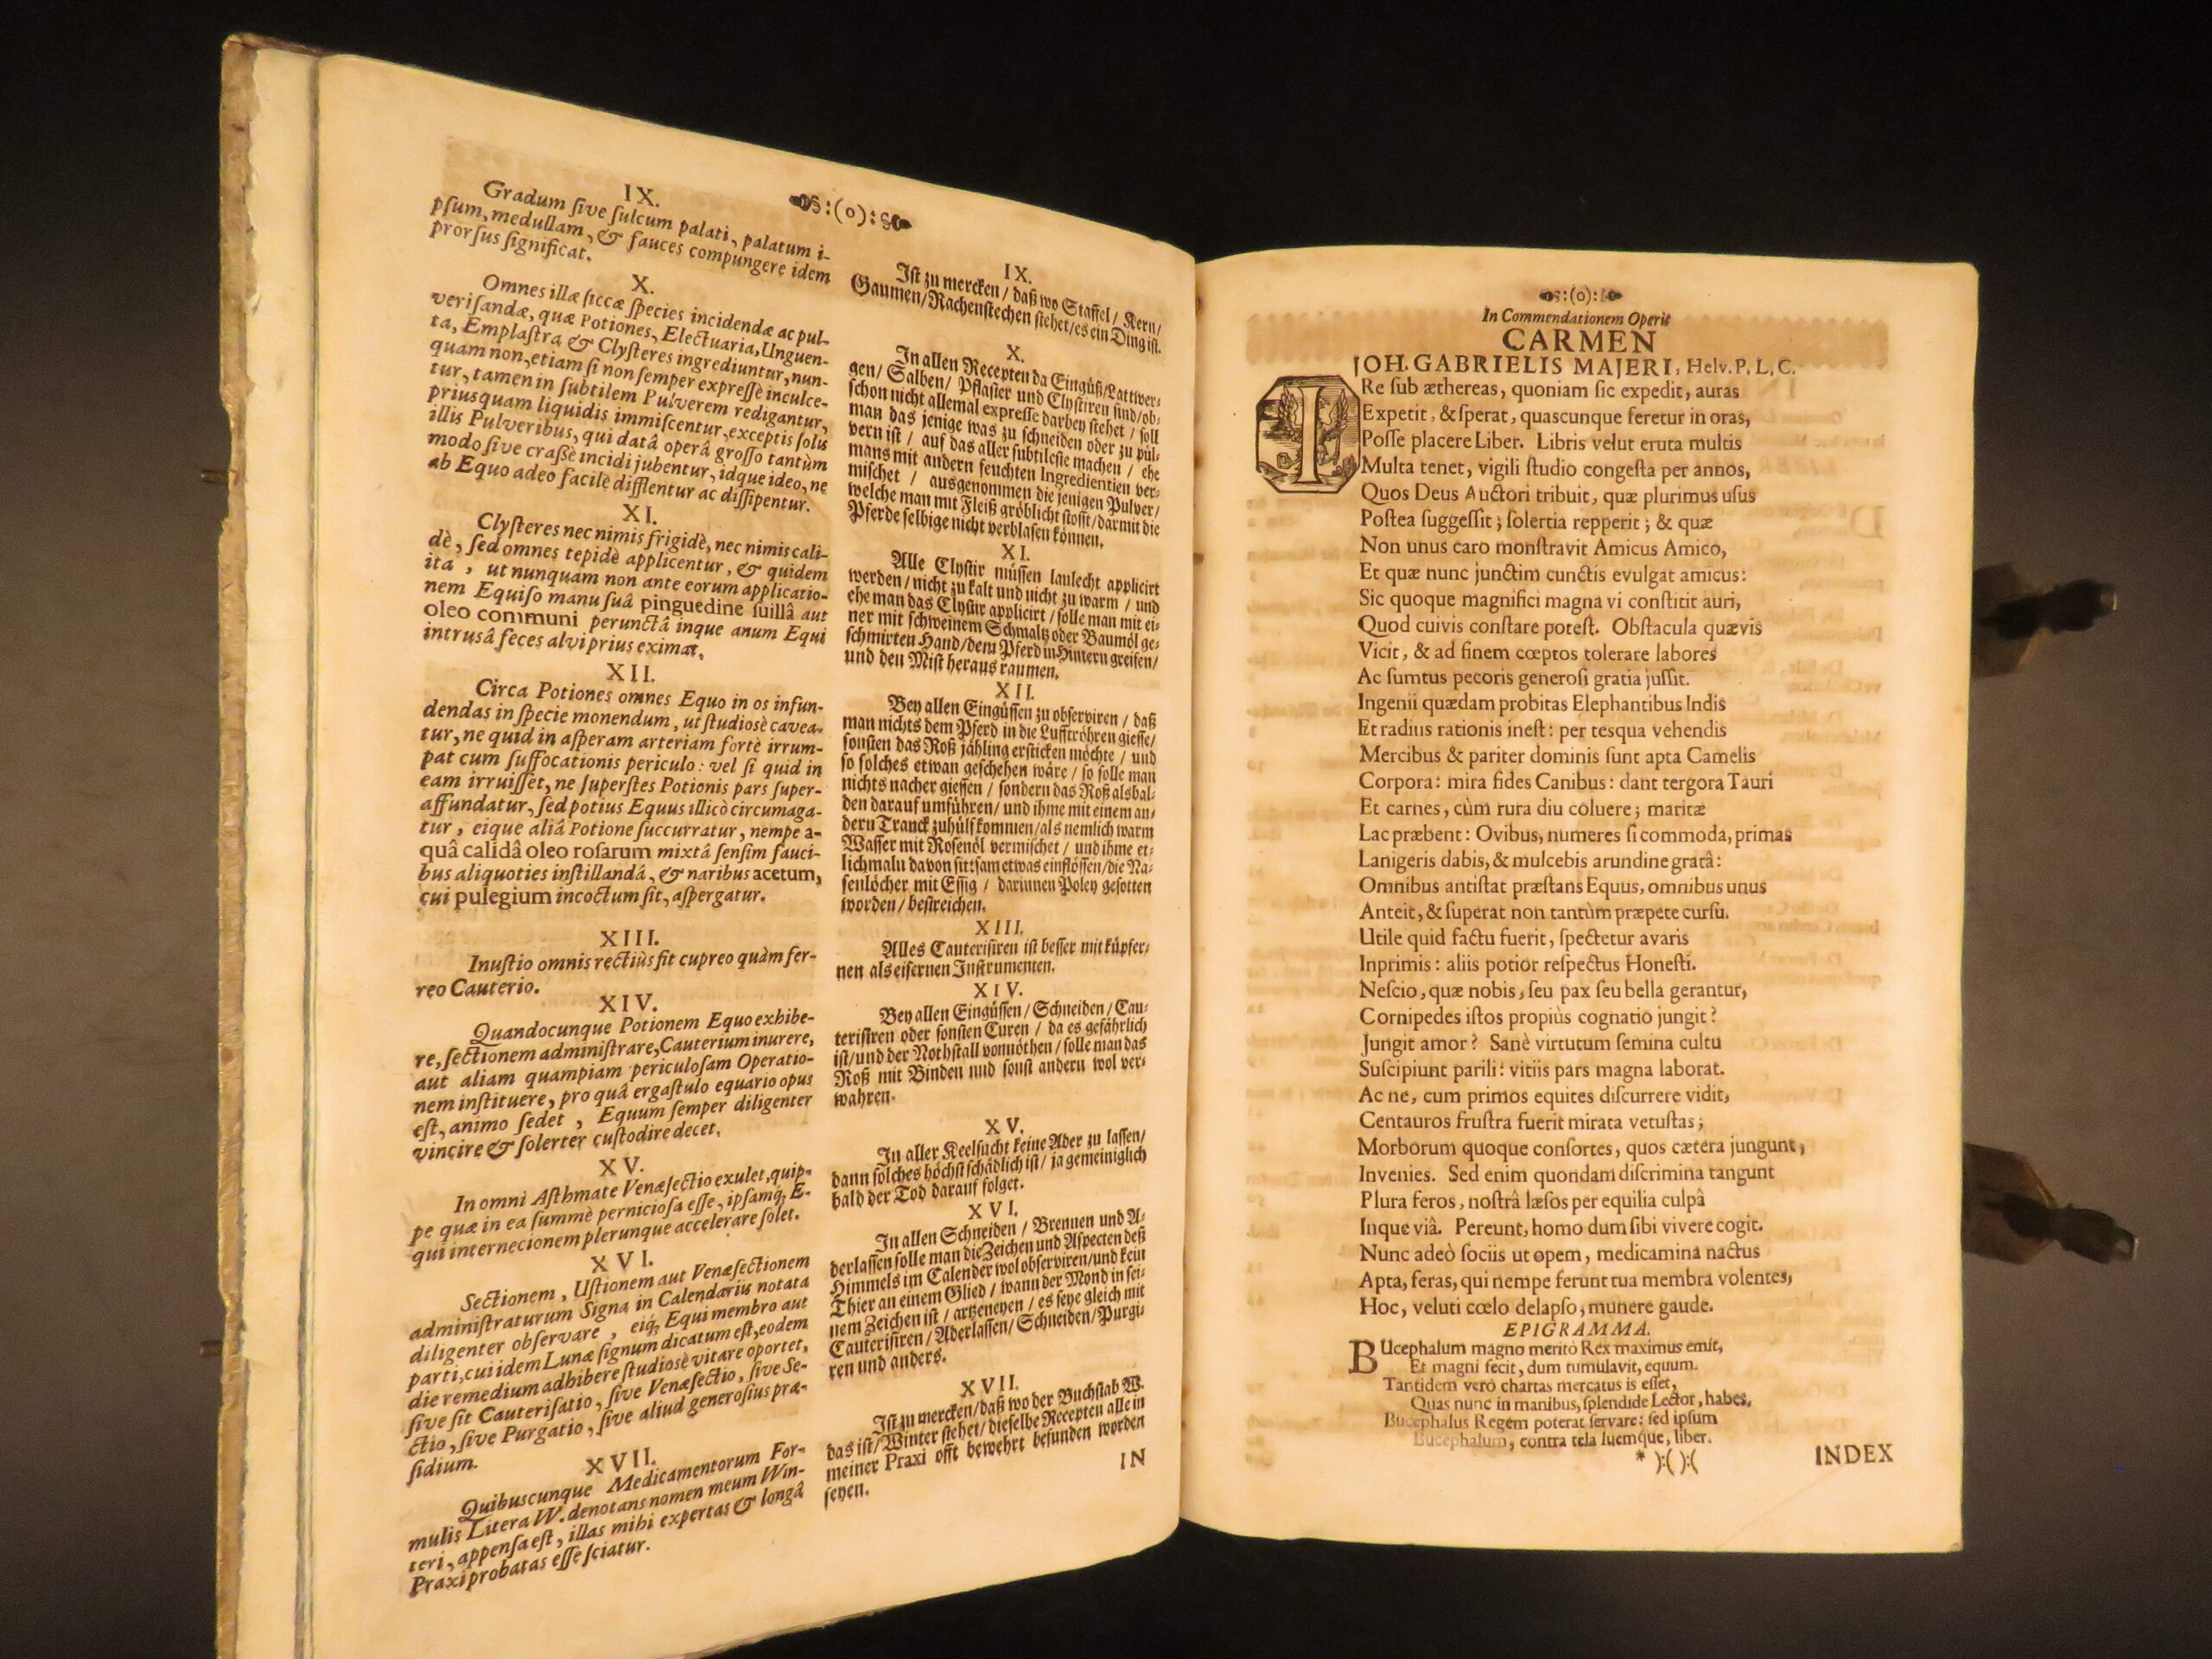 IX.
Gradum ſive ſulcum palati, palatum i-
pſum, medullam, & fauces compungere idem
prorſus ſignificat.
X.
Omnes illæ ſiccæ ſpecies incidendæ ac pul-
veriſandæ, quæ Potiones, Electuaria, Unguen-
ta, Emplaſtra & Clyſteres ingrediuntur, nun-
quam non, etiam ſi non ſemper expreſſè inculce-
tur, tamen in ſubtilem Pulverem redigantur,
priusquam liquidis immiſcentur, exceptis ſolis
illis Pulveribus, qui datâ operâ groſſo tantùm
modo ſive craſſè incidi jubentur, idque ideo, ne
ab Equo adeo facilè difflentur ac diſſipentur.
XI.
Clyſteres nec nimis frigidè, nec nimis cali-
dè, ſed omnes tepidè applicentur, & quidem
ita, ut nunquam non ante eorum applicatio-
nem Equiſo manu ſuâ pinguedine ſuillâ aut
oleo communi perunctâ inque anum Equi
intrusâ feces alvi prius eximat.
XII.
Circa Potiones omnes Equo in os infun-
dendas in ſpecie monendum, ut ſtudiosè cavea-
tur, ne quid in aſperam arteriam fortè irrum-
pat cum ſuffocationis periculo: vel ſi quid in
eam irruiſſet, ne ſuperſtes Potionis pars ſuper-
affundatur, ſed potius Equus illicò circumaga-
tur, eique aliâ Potione ſuccurratur, nempe a-
quâ calidâ oleo roſarum mixtâ ſenſim fauci-
bus aliquoties inſtillandâ, & naribus acetum,
cui pulegium incoctum ſit, aſpergatur.
XIII.
Inuſtio omnis rectiùs fit cupreo quàm fer-
reo Cauterio.
XIV.
Quandocunque Potionem Equo exhibe-
re, ſectionem adminiſtrare, Cauterium inurere,
aut aliam quampiam periculoſam Operatio-
nem inſtituere, pro quâ ergaſtulo equario opus
eſt, animo ſedet, Equum ſemper diligenter
vincire & ſolerter cuſtodire decet.
XV.
In omni Aſthmate Venæſectio exulet, quip-
pe quæ in ea ſummè pernicioſa eſſe, ipſamq; E-
qui internecionem plerunque accelerare ſolet.
XVI.
Sectionem, Uſtionem aut Venæſectionem
adminiſtraturum Signa in Calendariis notata
diligenter obſervare, eiq; Equi membro aut
parti, cui idem Lunæ ſignum dicatum eſt, eodem
die remedium adhibere ſtudiosè vitare oportet,
ſive ſit Cauteriſatio, ſive Venæſectio, ſive Se-
ctio, ſive Purgatio, ſive aliud generoſius præ-
ſidium.
XVII.
Quibuscunque Medicamentorum For-
mulis Litera W. denotans nomen meum Win-
teri, appenſa eſt, illas mihi expertas & longâ
Praxi probatas eſſe ſciatur.
:(o):
IX.
Iſt zu mercken / daß wo Staffel / Kern /
Gaumen / Rachenſtechen ſtehet / es ein Ding iſt.
X.
In allen Recepten da Eingüß / Lattwer-
gen / Salben / Pflaſter und Clyſtiren ſind / ob-
ſchon nicht allemal expreſſe darbey ſtehet / ſoll
man das jenige was zu ſchneiden oder zu pül-
vern iſt / auf das aller ſubtileſte machen / ehe
mans mit andern feuchten Ingredientien ver-
miſchet / ausgenommen die jenigen Pulver /
welche man mit Fleiß gröblicht ſtoſſt / darmit die
Pferde ſelbige nicht verblaſen können.
XI.
Alle Clyſtir müſſen laulecht applicirt
werden / nicht zu kalt und nicht zu warm / und
ehe man das Clyſtir applicirt / ſolle man mit ei-
ner mit ſchweinem Schmaltz oder Baumöl ge-
ſchmirten Hand / dem Pferd in Hintern greifen /
und den Miſt heraus raumen.
XII.
Bey allen Eingüſſen zu obſerviren / daß
man nichts dem Pferd in die Lufftröhren gieſſe /
ſonſten das Roß jähling erſticken möchte / und
ſo ſolches etwan geſchehen wäre / ſo ſolle man
nichts nacher gieſſen / ſondern das Roß alsbal-
den darauf umführen / und ihme mit einem an-
dern Tranck zuhülf kommen / als nemlich warm
Waſſer mit Roſenöl vermiſchet / und ihme et-
lichmaln davon ſittſam etwas einflöſſen / die Na-
ſenlöcher mit Eſſig / darinnen Poley geſotten
worden / beſtreichen.
XIII.
Alles Cauteriſiren iſt beſſer mit küpfer-
nen als eiſernen Inſtrumenten.
XIV.
Bey allen Eingüſſen / Schneiden / Cau-
teriſiren oder ſonſten Curen / da es gefährlich
iſt / und der Nothſtall vonnöthen / ſolle man das
Roß mit Binden und ſonſt andern wol ver-
wahren.
XV.
In aller Keelſucht keine Ader zu laſſen /
dann ſolches höchſt ſchädlich iſt / ja gemeiniglich
bald der Tod darauf folget.
XVI.
In allen Schneiden / Brennen und A-
derlaſſen ſolle man die Zeichen und Aſpecten deß
Himmels im Calender wol obſerviren / und kein
Thier an einem Glied / wann der Mond in ſei-
nem Zeichen iſt / artzeneyen / es ſeye gleich mit
Cauteriſiren / Aderlaſſen / Schneiden / Purgi-
ren und anders.
XVII.
Iſt zu mercken / daß wo der Buchſtab W.
das iſt / Winter ſtehet / dieſelbe Recepten alle in
meiner Praxi offt bewehrt befunden worden
ſeyen.
IN
:(o):
In Commendationem Operis
CARMEN
JOH. GABRIELIS MAJERI, Helv. P. L. C.
IRe ſub æthereas, quoniam ſic expedit, auras
Expetit, & ſperat, quascunque feretur in oras,
Poſſe placere Liber. Libris velut eruta multis
Multa tenet, vigili ſtudio congeſta per annos,
Quos Deus Auctori tribuit, quæ plurimus uſus
Poſtea ſuggeſſit; ſolertia repperit; & quæ
Non unus caro monſtravit Amicus Amico,
Et quæ nunc junctim cunctis evulgat amicus:
Sic quoque magnifici magna vi conſtitit auri,
Quod cuivis conſtare poteſt. Obſtacula quævis
Vicit, & ad finem cœptos tolerare labores
Ac ſumtus pecoris generoſi gratia juſſit.
Ingenii quædam probitas Elephantibus Indis
Et radius rationis ineſt: per tesqua vehendis
Mercibus & pariter dominis ſunt apta Camelis
Corpora: mira fides Canibus: dant tergora Tauri
Et carnes, cùm rura diu coluere; maritæ
Lac præbent: Ovibus, numeres ſi commoda, primas
Lanigeris dabis, & mulcebis arundine gratâ:
Omnibus antiſtat præſtans Equus, omnibus unus
Anteit, & ſuperat non tantùm præpete curſu.
Utile quid factu fuerit, ſpectetur avaris
Inprimis: aliis potior reſpectus Honeſti.
Neſcio, quæ nobis, ſeu pax ſeu bella gerantur,
Cornipedes iſtos propiùs cognatio jungit?
Jungit amor? Sanè virtutum ſemina cultu
Suſcipiunt parili: vitiis pars magna laborat.
Ac ne, cum primos equites diſcurrere vidit,
Centauros fruſtra fuerit mirata vetuſtas;
Morborum quoque conſortes, quos cætera jungunt,
Invenies. Sed enim quondam diſcrimina tangunt
Plura feros, noſtrâ læſos per equilia culpâ
Inque viâ. Pereunt, homo dum ſibi vivere cogit.
Nunc adeò ſociis ut opem, medicamina nactus
Apta, feras, qui nempe ferunt tua membra volentes,
Hoc, veluti cœlo delapſo, munere gaude.
EPIGRAMMA.
BUcephalum magno meritò Rex maximus emit,
Et magni fecit, dum tumulavit, equum.
Tantidem verò chartas mercatus is eſſet,
Quas nunc in manibus, ſplendide Lector, habes.
Bucephalus Regem poterat ſervare: ſed ipſum
Bucephalum, contra tela luemque, liber.
* ):( ):(
INDEX